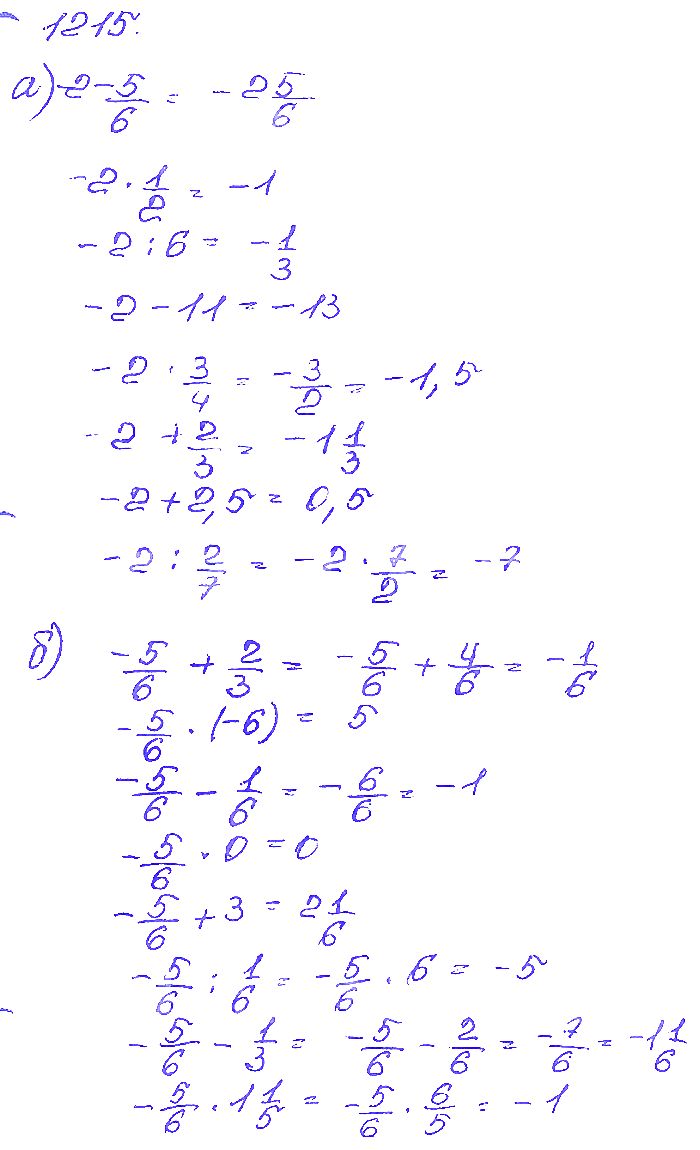 1215.
а) -2 - 5/6 = -2 5/6
-2 · 1/2 = -1
-2 : 6 = -1/3
-2 - 11 = -13
-2 · 3/4 = -3/2 = -1,5
-2 + 2/3 = -1 1/3
-2 + 2,5 = 0,5
-2 : 2/7 = -2 · 7/2 = -7
б) -5/6 + 2/3 = -5/6 + 4/6 = -1/6
-5/6 · (-6) = 5
-5/6 - 1/6 = -6/6 = -1
-5/6 · 0 = 0
-5/6 + 3 = 2 1/6
-5/6 : 1/6 = -5/6 · 6 = -5
-5/6 - 1/3 = -5/6 - 2/6 = -7/6 = -1 1/6
-5/6 · 1 1/5 = -5/6 · 6/5 = -1